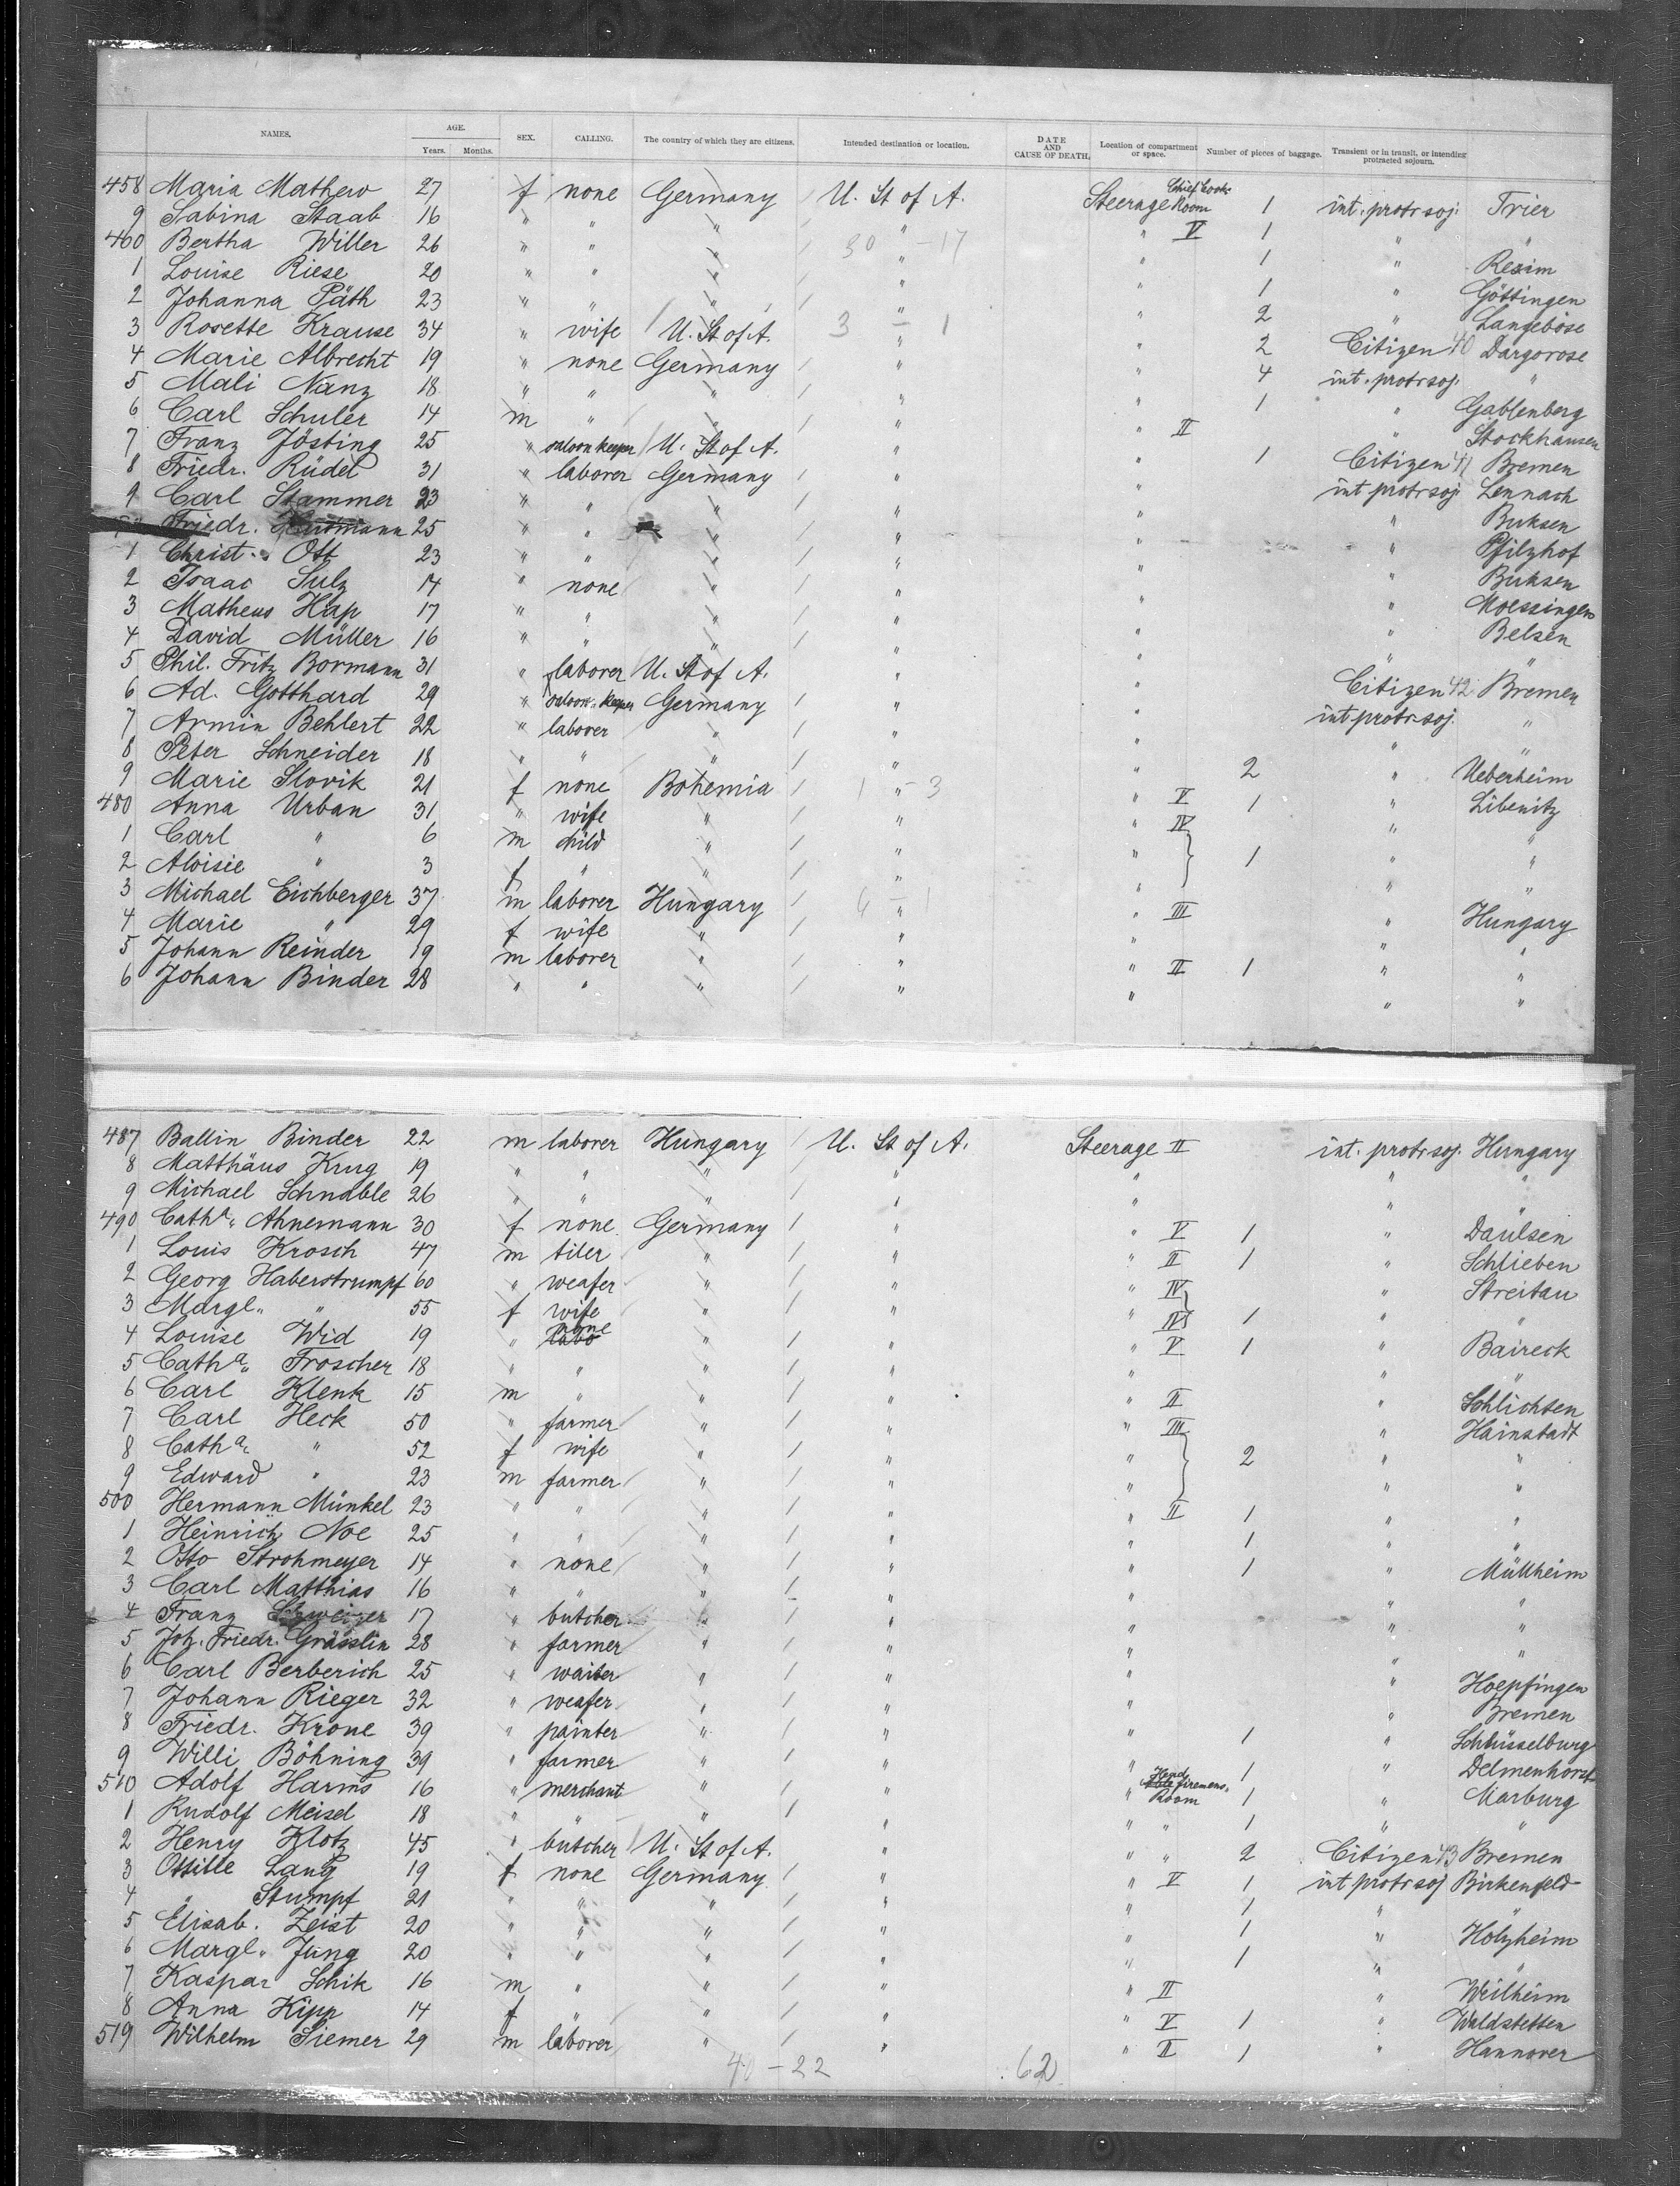 NAMES. AGE. Years. Months. SEX. CALLING. The country of which they are citizens. Intended destination or location. DATE AND CAUSE OF DEATH. Location of compartment or space. Number of pieces of baggage. Transient or in transit, or intending protracted sojourn.
458 Maria Mathew 27 f none Germany / U. St of A. Steerage Chief Cooks Room 1 int. protr soj. Trier
9 Sabina Staab 16 " " " / " " V 1 " "
460 Bertha Willer 26 " " " / 30 - 17 " " 1 " Rexim
1 Louise Riese 20 " " " / " " 1 " Göttingen
2 Johanna Päth 23 " " " / " " 2 " Langeböse
3 Rosette Krause 34 " wife / U. St of A. 3 - 1 " " 2 Citizen 40 Dargorose
4 Marie Albrecht 19 " none Germany / " " 4 int. protr soj. "
5 Mali Nanz 18 " " " / " " 1 " Gablenberg
6 Carl Schuler 14 m " " / " " II " Stockhausen
7 Franz Jösting 25 " saloon keeper / U. St of A. " " 1 Citizen 41 Bremen
8 Friedr. Rüdel 31 " laborer Germany / " " int protr soj. Lennach
9 Carl Stammer 23 " " " / " " " Buksen
Friedr. 25 " " " " " " Pfilzhof
1 Christ. Ott 23 " " " / " " " Buksen
2 Isaac Sulz 14 " none " / " " " Moessingen
3 Matheus Hap 17 " " " / " " " Belsen
4 David Müller 16 " " " / " " " "
5 Phil. Fritz Bormann 31 " laborer U. St of A. " " Citizen 42 Bremen
6 Ad. Gotthard 29 " saloon-keeper Germany / " " int protr soj. "
7 Armin Behlert 22 " laborer " / " " " "
8 Peter Schneider 18 " " " / " " 2 " Ueberheim
9 Marie Slovik 21 f none Bohemia / 1 - 3 " " V 1 " Libenitz
480 Anna Urban 31 " wife " / " " IV " "
1 Carl " 6 m child " / " " 1 " "
2 Aloisie " 3 f " " / " " " "
3 Michael Eichberger 37 m laborer Hungary / 6 - 1 " " III " Hungary
4 Marie " 29 f wife " / " " " "
5 Johann Reinder 19 m laborer " / " " II 1 " "
6 Johann Binder 28 " " " / " " " "
487 Ballin Binder 22 m laborer Hungary / U. St of A. Steerage II int. protr soj. Hungary
8 Matthäus Krug 19 " " " / " " " "
9 Michael Schnable 26 " " " / " " " "
490 Catha. Ahnemann 30 f none Germany / " " V 1 " Daulsen
1 Louis Krosch 47 m tiler " / " " II 1 " Schlieben
2 Georg Haberstrumpf 60 " weafer " / " " IV " Streitau
3 Margl. " 55 f wife " / " " IV 1 " "
4 Louise Wid 19 " none " / " " V 1 " Baireck
5 Catha. Froscher 18 " " " / " " " "
6 Carl Klenk 15 m " " / " " II " Schlichten
7 Carl Heck 50 " farmer " / " " III " Hainstadt
8 Catha. " 52 f wife " / " " 2 " "
9 Edward " 23 m farmer " / " " " "
500 Hermann Münkel 23 " " " / " " II 1 " "
1 Heinrich Noe 25 " " " / " " 1 " "
2 Otto Strohmeyer 14 " none " / " " 1 " Müllheim
3 Carl Matthias 16 " " " / " " " "
4 Franz Schweizer 17 " butcher " " " " "
5 Joh. Friedr. Grässlin 28 " farmer " / " " " "
6 Carl Berberich 25 " waiter " / " " " Hoepfingen
7 Johann Rieger 32 " weafer " / " " " Bremen
8 Friedr. Krone 39 " painter " / " " 1 " Schlüsselburg
9 Willi Böhning 39 " farmer " / " " 1 " Delmenhorst
510 Adolf Harms 16 " merchant " / " " Head firemens. Room 1 " Marburg
1 Rudolf Meisel 18 " " " / " " " 1 " "
2 Henry Klotz 45 " butcher / U. St of A. " " " 2 Citizen 43 Bremen
3 Ottilie Lang 19 f none Germany / " " V 1 int protr soj Birkenfeld
4 " Stumpf 21 " " " / " " 1 " "
5 Elisab. Zeist 20 " " " / " " 1 " Holzheim
6 Margl. Jung 20 " " " / " " 1 " "
7 Kaspar Schik 16 m " " / " " II " Weilheim
8 Anna Kipp 14 f " " / " " V 1 " Waldstetten
519 Wilhelm Siemer 29 m laborer " / " " II 1 " Hannover
40 - 22 62